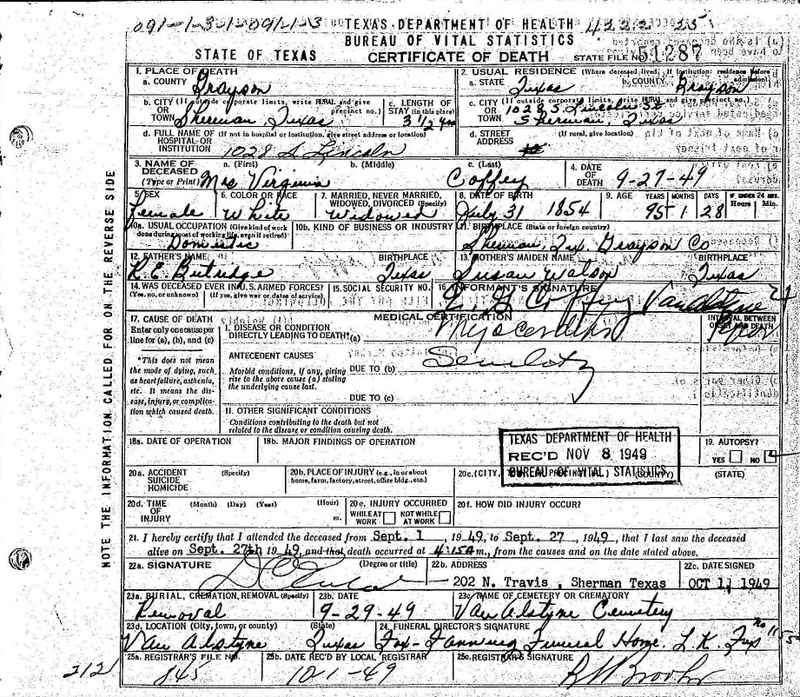 091-1-3-1-091-1-3 TEXAS DEPARTMENT OF HEALTH 4222 25
BUREAU OF VITAL STATISTICS
STATE OF TEXAS CERTIFICATE OF DEATH STATE FILE NO. 51287
1. PLACE OF DEATH 2. USUAL RESIDENCE (Where deceased lived. If institution: residence before admission)
a. COUNTY Grayson a. STATE Texas b. COUNTY Grayson
b. CITY (If outside corporate limits, write RURAL and give precinct no.) c. LENGTH OF STAY (in this place) c. CITY (If outside corporate limits, write RURAL and give precinct no.)
OR TOWN Sherman Texas 3 1/2 yrs OR TOWN 1028 S Lincoln St Sherman, Texas
d. FULL NAME OF HOSPITAL OR INSTITUTION (If not in hospital or institution, give street address or location) d. STREET ADDRESS (If rural, give location)
1028 S. Lincoln
3. NAME OF DECEASED a. (First) b. (Middle) c. (Last) 4. DATE OF DEATH
(Type or Print) Mrs Virginia Coffey 9-27-49
5. SEX 6. COLOR OR RACE 7. MARRIED, NEVER MARRIED, WIDOWED, DIVORCED (Specify) 8. DATE OF BIRTH 9. AGE YEARS MONTHS DAYS IF UNDER 24 HRS. Hours Min.
Female White Widowed July 31 1854 95 1 28
10a. USUAL OCCUPATION (Give kind of work done during most of working life, even if retired) 10b. KIND OF BUSINESS OR INDUSTRY 11. BIRTHPLACE (State or foreign country)
Domestic Sherman, Tex. Grayson Co
12. FATHER'S NAME BIRTHPLACE 13. MOTHER'S MAIDEN NAME BIRTHPLACE
Texas Susan Watson Texas
14. WAS DECEASED EVER IN U.S. ARMED FORCES? 15. SOCIAL SECURITY NO. 16. INFORMANT'S SIGNATURE
(Yes, no, or unknown) (If yes, give war or dates of service) Coffey Van Alstyne
MEDICAL CERTIFICATION
17. CAUSE OF DEATH
Enter only one cause per line for (a), (b), and (c)
I. DISEASE OR CONDITION DIRECTLY LEADING TO DEATH* (a) INTERVAL BETWEEN ONSET AND DEATH
*This does not mean the mode of dying, such as heart failure, asthenia, etc. It means the disease, injury, or complication which caused death.
ANTECEDENT CAUSES
Morbid conditions, if any, giving rise to the above cause (a) stating the underlying cause last.
DUE TO (b) Senility
DUE TO (c)
II. OTHER SIGNIFICANT CONDITIONS
Conditions contributing to the death but not related to the disease or condition causing death.
18a. DATE OF OPERATION 18b. MAJOR FINDINGS OF OPERATION 19. AUTOPSY?
YES NO
TEXAS DEPARTMENT OF HEALTH
REC'D NOV 8 1949
BUREAU OF VITAL STATISTICS
20a. ACCIDENT SUICIDE HOMICIDE (Specify) 20b. PLACE OF INJURY (e.g., in or about home, farm, factory, street, office bldg., etc.) 20c. (CITY, (STATE)
20d. TIME OF INJURY (Month) (Day) (Year) (Hour) m. 20e. INJURY OCCURRED WHILE AT WORK NOT WHILE AT WORK 20f. HOW DID INJURY OCCUR?
21. I hereby certify that I attended the deceased from Sept. 1, 1949, to Sept. 27, 1949, that I last saw the deceased
alive on Sept. 27th 1949 and that death occurred at 4:15A m., from the causes and on the date stated above.
22a. SIGNATURE (Degree or title) 22b. ADDRESS 22c. DATE SIGNED
202 N. Travis, Sherman Texas OCT 1, 1949
23a. BURIAL, CREMATION, REMOVAL (Specify) 23b. DATE 23c. NAME OF CEMETERY OR CREMATORY
Removal 9-29-49 Van Alstyne Cemetery
23d. LOCATION (City, town, or county) (State) 24. FUNERAL DIRECTOR'S SIGNATURE
Van Alstyne Texas Funeral Home.
25a. REGISTRAR'S FILE NO. 25b. DATE REC'D BY LOCAL REGISTRAR 25c. REGISTRAR'S SIGNATURE
2121 845 10-1-49
NOTE THE INFORMATION CALLED FOR ON THE REVERSE SIDE